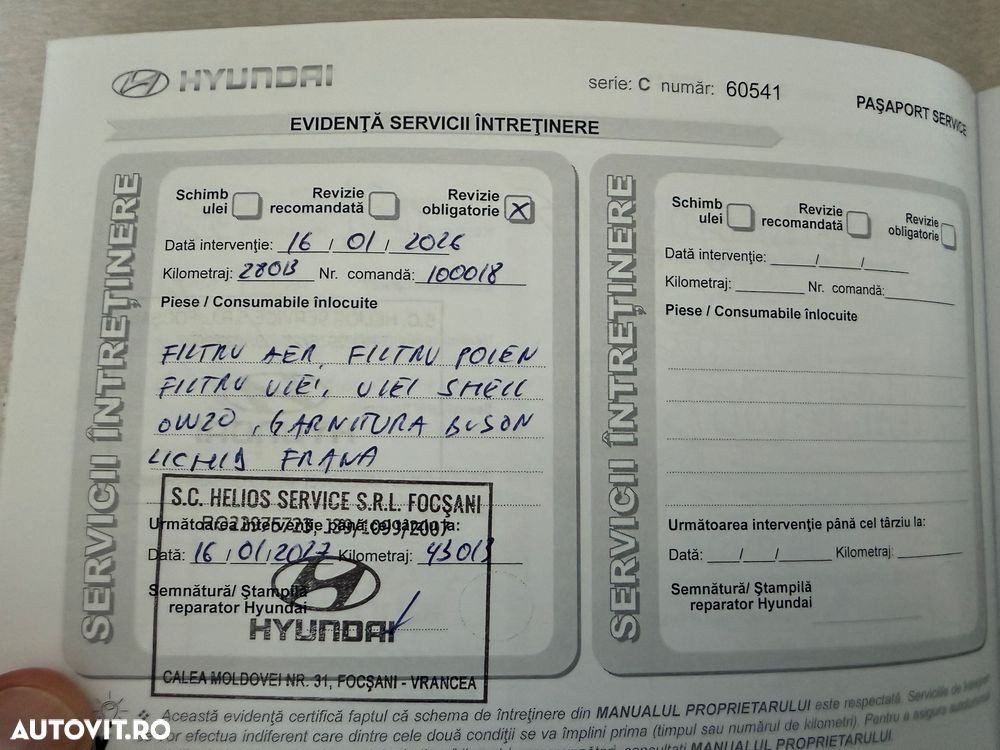 HYUNDAI
serie: C număr: 60541
PAȘAPORT SERVICE
EVIDENȚĂ SERVICII ÎNTREȚINERE
SERVICII ÎNTREȚINERE
Schimb ulei
Revizie recomandată
Revizie obligatorie X
Dată intervenție: 16 / 01 / 2026
Kilometraj: 28013 Nr. comandă: 100018
Piese / Consumabile înlocuite
FILTRU AER, FILTRU POLEN
FILTRU ULEI, ULEI SHELL
0W20, GARNITURA BUSON
LICHID FRANA
S.C. HELIOS SERVICE S.R.L. FOCȘANI
Următoarea intervenție până cel târziu la:
Dată: 16 / 01 / 2027 Kilometraj: 43013
Semnătură/ Ștampilă
reparator Hyundai
HYUNDAI
CALEA MOLDOVEI NR. 31, FOCȘANI - VRANCEA
SERVICII ÎNTREȚINERE
Schimb ulei
Revizie recomandată
Revizie obligatorie
Dată intervenție: / /
Kilometraj: Nr. comandă:
Piese / Consumabile înlocuite
Următoarea intervenție până cel târziu la:
Dată: / / Kilometraj:
Semnătură/ Ștampilă
reparator Hyundai
Această evidență certifică faptul că schema de întreținere din MANUALUL PROPRIETARULUI este respectată. Serviciile de
efectua indiferent care dintre cele două condiții se va împlini prima (timpul sau numărul de kilometri). Pentru a asigura
MANUALUL PROPRIETARULUI
AUTOVIT.RO